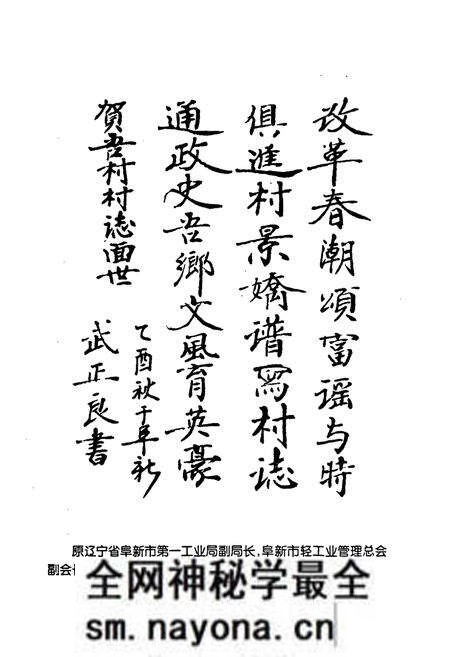 改革春潮頌富谣与時
俱進村景嬌谱寫村誌
通政史吾鄉文風育英豪
賀吾村村誌面世
乙酉秋于阜新
武正良書
原辽宁省阜新市第一工业局副局长，阜新市轻工业管理总会
副会
全网神秘学最全
sm.nayona.cn